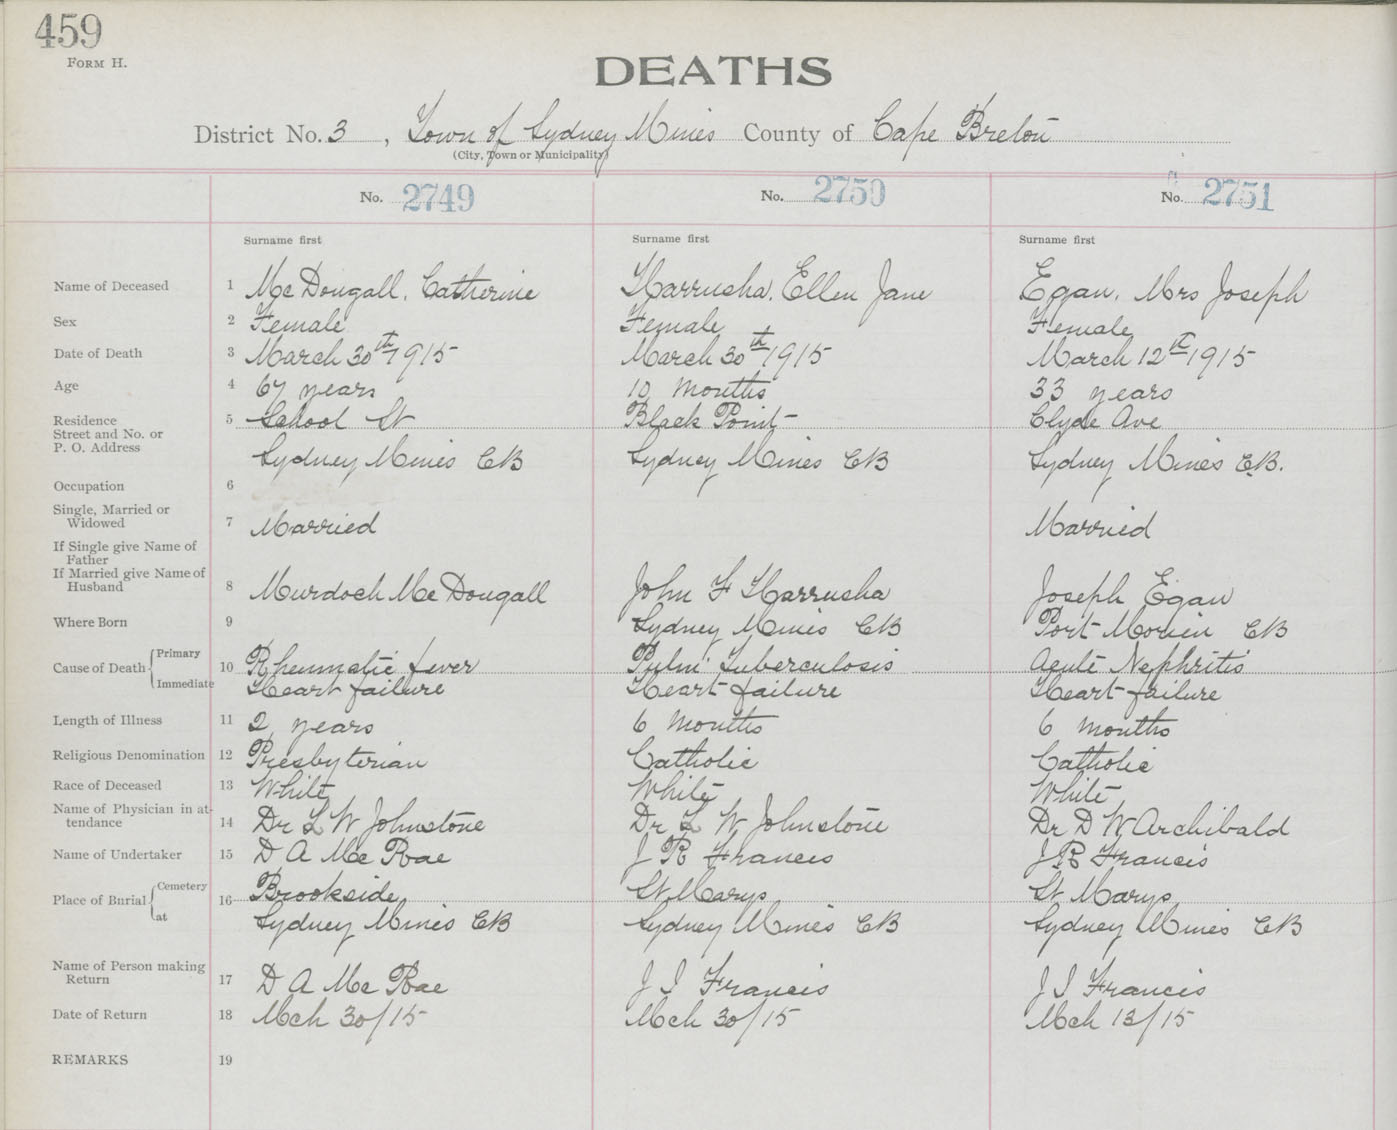 459
FORM H.
DEATHS
District No. 3, Town of Sydney Mines County of Cape Breton
(City, Town or Municipality)
No. 2749 No. 2750 No. 2751
Surname first Surname first Surname first
Name of Deceased 1 McDougall, Catherine Harrusha, Ellen Jane Egan, Mrs Joseph
Sex 2 Female Female Female
Date of Death 3 March 30th 1915 March 30th 1915 March 12th 1915
Age 4 67 years 10 months 33 years
Residence 5 School St Black Point Clyde Ave
Street and No. or
P. O. Address Sydney Mines CB Sydney Mines CB Sydney Mines C.B.
Occupation 6
Single, Married or
Widowed 7 Married Married
If Single give Name of
Father
If Married give Name of
Husband 8 Murdoch McDougall John F Harrusha Joseph Egan
Where Born 9 Sydney Mines CB Port Morien CB
Cause of Death Primary 10 Rheumatic fever Pulm. Tuberculosis Acute Nephritis
Immediate Heart failure Heart failure Heart failure
Length of Illness 11 2 years 6 months 6 months
Religious Denomination 12 Presbyterian Catholic Catholic
Race of Deceased 13 White White White
Name of Physician in at-
tendance 14 Dr L W Johnstone Dr L W Johnstone Dr D W Archibald
Name of Undertaker 15 D A McRae J R Francis J R Francis
Place of Burial Cemetery 16 Brookside St Marys St Marys
at Sydney Mines CB Sydney Mines CB Sydney Mines CB
Name of Person making
Return 17 D A McRae J I Francis J I Francis
Date of Return 18 Mch 30/15 Mch 30/15 Mch 13/15
REMARKS 19